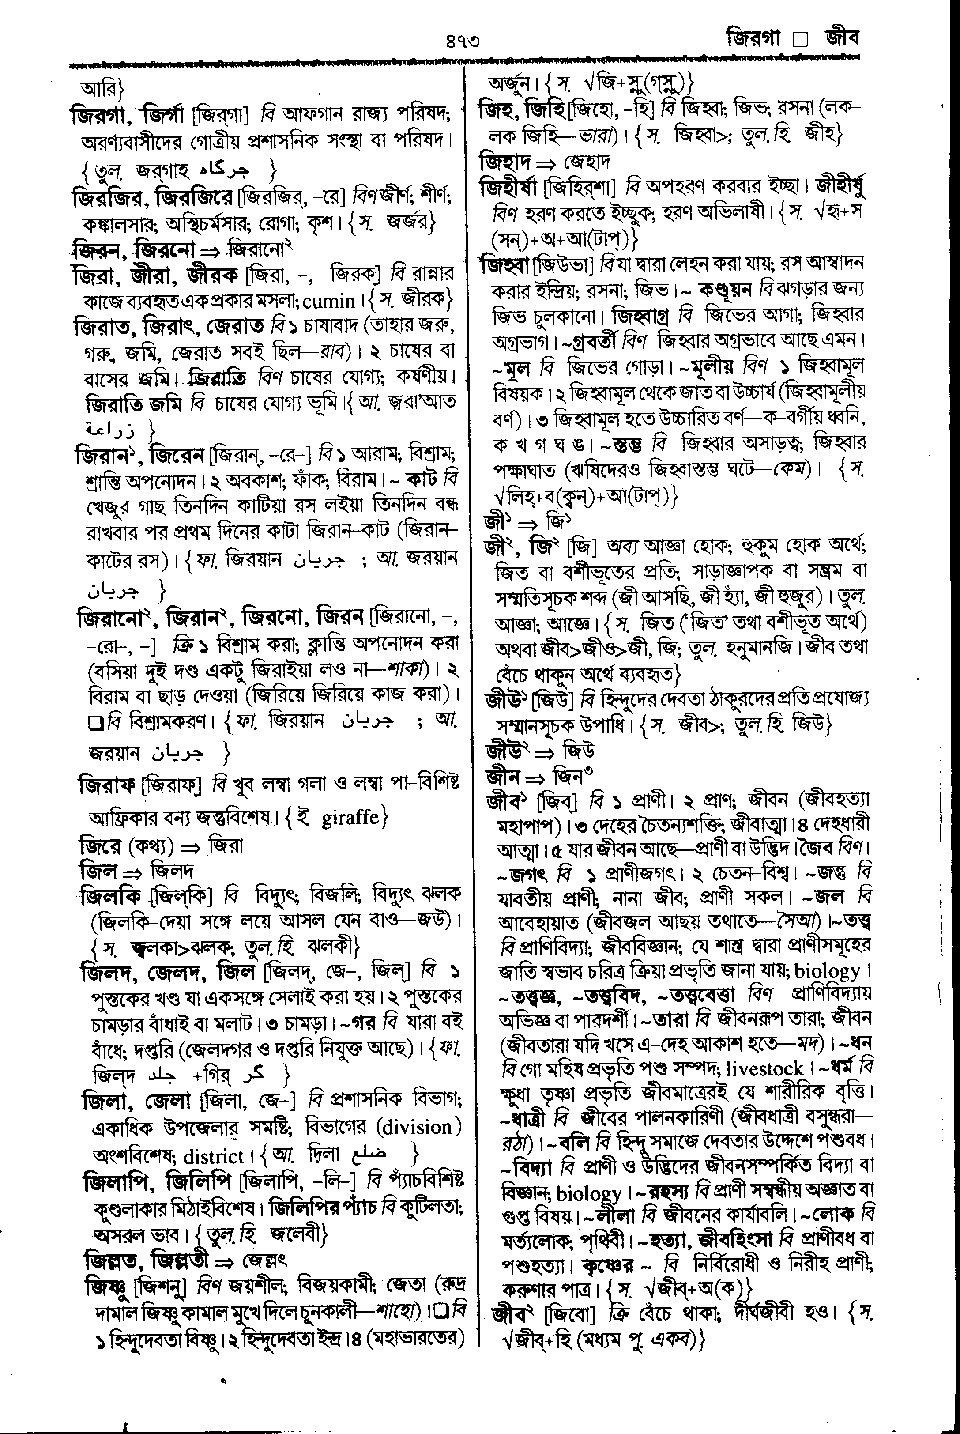 ৪৭৩
জিরগা □ জীব
আরি}
জিরগা, জির্গা [জির্গা] বি আফগান রাজ্য পরিষদ;
অরণ্যবাসীদের গোত্রীয় প্রশাসনিক সংস্থা বা পরিষদ।
{তুল. জরগাহ جرگاه }
জিরজির, জিরজিরে [জির্‌জির্, -রে] বিণ জীর্ণ; শীর্ণ;
কঙ্কালসার; অস্থিচর্মসার; রোগা; কৃশ। {স. জর্জর}
জিরন, জিরনো ⇒ জিরানো২
জিরা, জীরা, জীরক [জিরা, -, জিরক] বি রান্নার
কাজে ব্যবহৃত এক প্রকার মসলা; cumin। {স. জীরক}
জিরাত, জিরাৎ, জেরাত বি ১ চাষাবাদ (তাহার জরু,
গরু, জমি, জেরাত সবই ছিল—রাব)। ২ চাষের বা
বাসের জমি। জিরাতি বিণ চাষের যোগ্য; কর্ষণীয়।
জিরাতি জমি বি চাষের যোগ্য ভূমি। {আ. জরা'আত
زراعة }
জিরান১, জিরেন [জিরান্, -রে-] বি ১ আরাম; বিশ্রাম;
শ্রান্তি অপনোদন। ২ অবকাশ; ফাঁক; বিরাম। ~ কাট বি
খেজুর গাছ তিনদিন কাটিয়া রস লইয়া তিনদিন বন্ধ
রাখবার পর প্রথম দিনের কাটা জিরান-কাট (জিরান-
কাটের রস)। {ফা. জিরয়ান جريان ; আ. জরয়ান
جريان }
জিরানো২, জিরান২, জিরনো, জিরন [জিরানো, -,
-রো-, -] ক্রি ১ বিশ্রাম করা; ক্লান্তি অপনোদন করা
(বসিয়া দুই দণ্ড একটু জিরাইয়া লও না—শাকা)। ২
বিরাম বা ছাড় দেওয়া (জিরিয়ে জিরিয়ে কাজ করা)।
□ বি বিশ্রামকরণ। {ফা. জিরয়ান جريان ; আ.
জরয়ান جريان }
জিরাফ [জিরাফ্] বি খুব লম্বা গলা ও লম্বা পা-বিশিষ্ট
আফ্রিকার বন্য জন্তুবিশেষ। {ই giraffe}
জিরে (কথ্য) ⇒ জিরা
জিল ⇒ জিলদ
জিলকি [জিল্‌কি] বি বিদ্যুৎ; বিজলি; বিদ্যুৎ ঝলক
(জিলকি-দেয়া সঙ্গে লয়ে আসল যেন বাও—জউ)।
{স. জ্বলকা>ঝলক; তুল. হি. ঝলকী}
জিলদ, জেলদ, জিল [জিলদ্, জে-, জিল্] বি ১
পুস্তকের খণ্ড যা একসঙ্গে সেলাই করা হয়। ২ পুস্তকের
চামড়ার বাঁধাই বা মলাট। ৩ চামড়া। ~গর বি যারা বই
বাঁধে; দপ্তরি (জেলদগর ও দপ্তরি নিযুক্ত আছে)। {ফা.
জিল্‌দ جلد +গির্ گر }
জিলা, জেলা [জিলা, জে-] বি প্রশাসনিক বিভাগ;
একাধিক উপজেলার সমষ্টি; বিভাগের (division)
অংশবিশেষ; district। {আ. দিলা ضلع }
জিলাপি, জিলিপি [জিলাপি, -লি-] বি প্যাঁচবিশিষ্ট
কুণ্ডলাকার মিঠাইবিশেষ। জিলিপির প্যাঁচ বি কুটিলতা;
অসরল ভাব। {তুল. হি. জলেবী}
জিল্লত, জিল্লতী ⇒ জেল্লৎ
জিষ্ণু [জিশ্‌নু] বিণ জয়শীল; বিজয়কামী; জেতা (রুদ্র
দামাল জিষ্ণু কামাল মুখে দিলে চূনকালী—শাহো)। □ বি
১ হিন্দুদেবতা বিষ্ণু। ২ হিন্দুদেবতা ইন্দ্র। ৪ (মহাভারতের)
অর্জুন। {স. √জি+স্নু(গ্স্নু)}
জিহ, জিহি [জিহো, -হি] বি জিহ্বা; জিভ; রসনা (লক-
লক জিহি—ভারা)। {স. জিহ্বা>; তুল. হি. জীহ}
জিহাদ ⇒ জেহাদ
জিহীর্ষা [জিহির্‌শা] বি অপহরণ করবার ইচ্ছা। জীহীর্ষু
বিণ হরণ করতে ইচ্ছুক; হরণ অভিলাষী। {স. √হৃ+স
(সন্)+অ+আ(টাপ্)}
জিহ্বা [জিউভা] বি যা দ্বারা লেহন করা যায়; রস আস্বাদন
করার ইন্দ্রিয়; রসনা; জিভ। ~ কণ্ডূয়ন বি ঝগড়ার জন্য
জিভ চুলকানো। জিহ্বাগ্র বি জিভের আগা; জিহ্বার
অগ্রভাগ। ~গ্রবর্তী বিণ জিহ্বার অগ্রভাবে আছে এমন।
~মূল বি জিভের গোড়া। ~মূলীয় বিণ ১ জিহ্বামূল
বিষয়ক। ২ জিহ্বামূল থেকে জাত বা উচ্চার্য (জিহ্বামূলীয়
বর্ণ)। ৩ জিহ্বামূল হতে উচ্চারিত বর্ণ—ক-বর্গীয় ধ্বনি,
ক খ গ ঘ ঙ। ~স্তম্ভ বি জিহ্বার অসাড়ত্ব; জিহ্বার
পক্ষাঘাত (ঋষিদেরও জিহ্বাস্তম্ভ ঘটে—কেম)। {স.
√লিহ্+ব(ক্বন্)+আ(টাপ্)}
জী১ ⇒ জি১
জী২, জি২ [জি] অব্য আজ্ঞা হোক; হুকুম হোক অর্থে;
জিত বা বশীভূতের প্রতি; সাড়াজ্ঞাপক বা সম্ভ্রম বা
সম্মতিসূচক শব্দ (জী আসছি, জী হ্যাঁ, জী হুজুর)। তুল.
আজ্ঞা; আজ্ঞে। {স. জিত ('জিত' তথা বশীভূত অর্থে)
অথবা জীব>জীও>জী, জি; তুল. হনুমানজি। জীব তথা
বেঁচে থাকুন অর্থে ব্যবহৃত}
জীউ১ [জিউ] বি হিন্দুদের দেবতা ঠাকুরদের প্রতি প্রযোজ্য
সম্মানসূচক উপাধি। {স. জীব>; তুল. হি. জিউ}
জীউ২ ⇒ জিউ
জীন ⇒ জিন৩
জীব১ [জিব্] বি ১ প্রাণী। ২ প্রাণ; জীবন (জীবহত্যা
মহাপাপ)। ৩ দেহের চৈতন্যশক্তি; জীবাত্মা। ৪ দেহধারী
আত্মা। ৫ যার জীবন আছে—প্রাণী বা উদ্ভিদ। জৈব বিণ।
~জগৎ বি ১ প্রাণীজগৎ। ২ চেতন-বিশ্ব। ~জন্তু বি
যাবতীয় প্রাণী; নানা জীব; প্রাণী সকল। ~জল বি
আবেহায়াত (জীবজল আছয় তথাতে—সৈআ)। ~তত্ত্ব
বি প্রাণিবিদ্যা; জীববিজ্ঞান; যে শাস্ত্র দ্বারা প্রাণীসমূহের
জাতি স্বভাব চরিত্র ক্রিয়া প্রভৃতি জানা যায়; biology।
~তত্ত্বজ্ঞ, ~তত্ত্ববিদ, ~তত্ত্ববেত্তা বিণ প্রাণিবিদ্যায়
অভিজ্ঞ বা পারদর্শী। ~তারা বি জীবনরূপ তারা; জীবন
(জীবতারা যদি খসে এ-দেহ আকাশ হতে—মদ)। ~ধন
বি গো মহিষ প্রভৃতি পশু সম্পদ; livestock। ~ধর্ম বি
ক্ষুধা তৃষ্ণা প্রভৃতি জীবমাত্রেরই যে শারীরিক বৃত্তি।
~ধাত্রী বি জীবের পালনকারিণী (জীবধাত্রী বসুন্ধরা—
রঠা)। ~বলি বি হিন্দু সমাজে দেবতার উদ্দেশে পশুবধ।
~বিদ্যা বি প্রাণী ও উদ্ভিদের জীবনসম্পর্কিত বিদ্যা বা
বিজ্ঞান; biology। ~রহস্য বি প্রাণী সম্বন্ধীয় অজ্ঞাত বা
গুপ্ত বিষয়। ~লীলা বি জীবনের কার্যাবলি। ~লোক বি
মর্ত্যলোক; পৃথিবী। ~হত্যা, জীবহিংসা বি প্রাণীবধ বা
পশুহত্যা। কৃষ্ণের ~ বি নির্বিরোধী ও নিরীহ প্রাণী;
করুণার পাত্র। {স. √জীব্+অ(ক)}
জীব২ [জিবো] ক্রি বেঁচে থাকা; দীর্ঘজীবী হও। {স.
√জীব্+হি (মধ্যম পু. একব)}